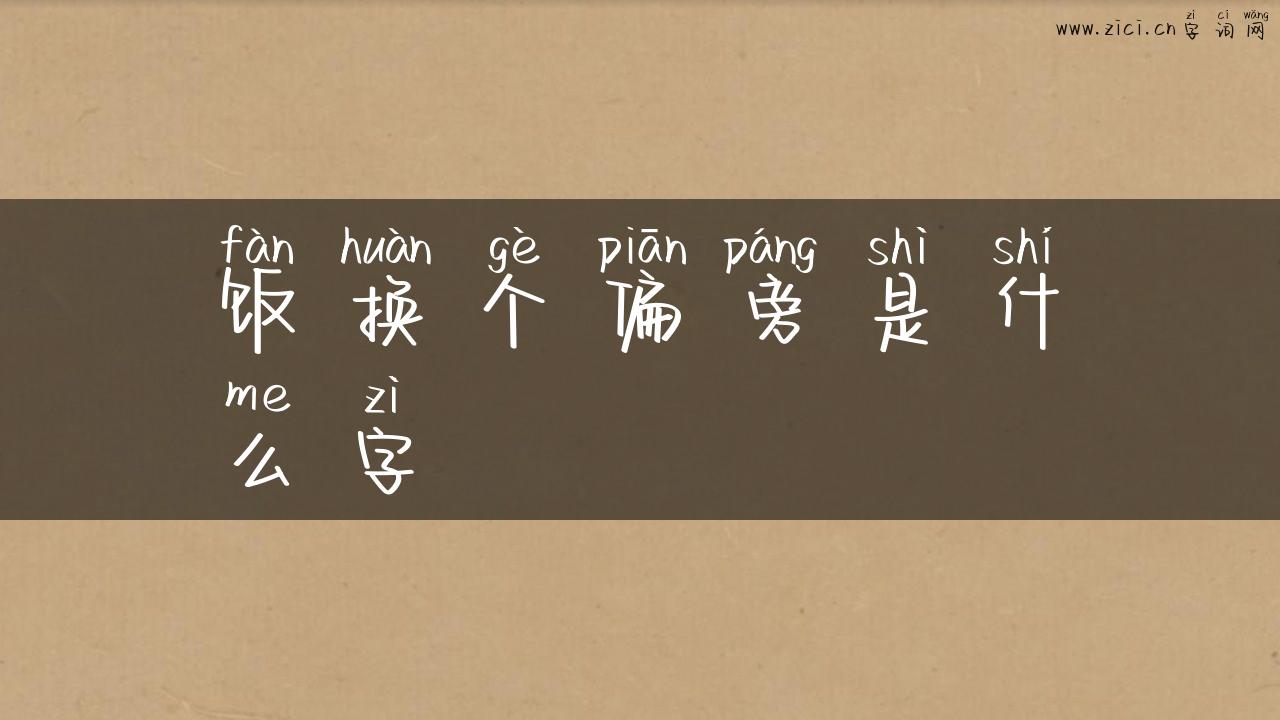 zì cí wǎng
www.zici.cn 字词网
fàn huàn gè piān páng shì shí
饭换个偏旁是什
me zì
么字